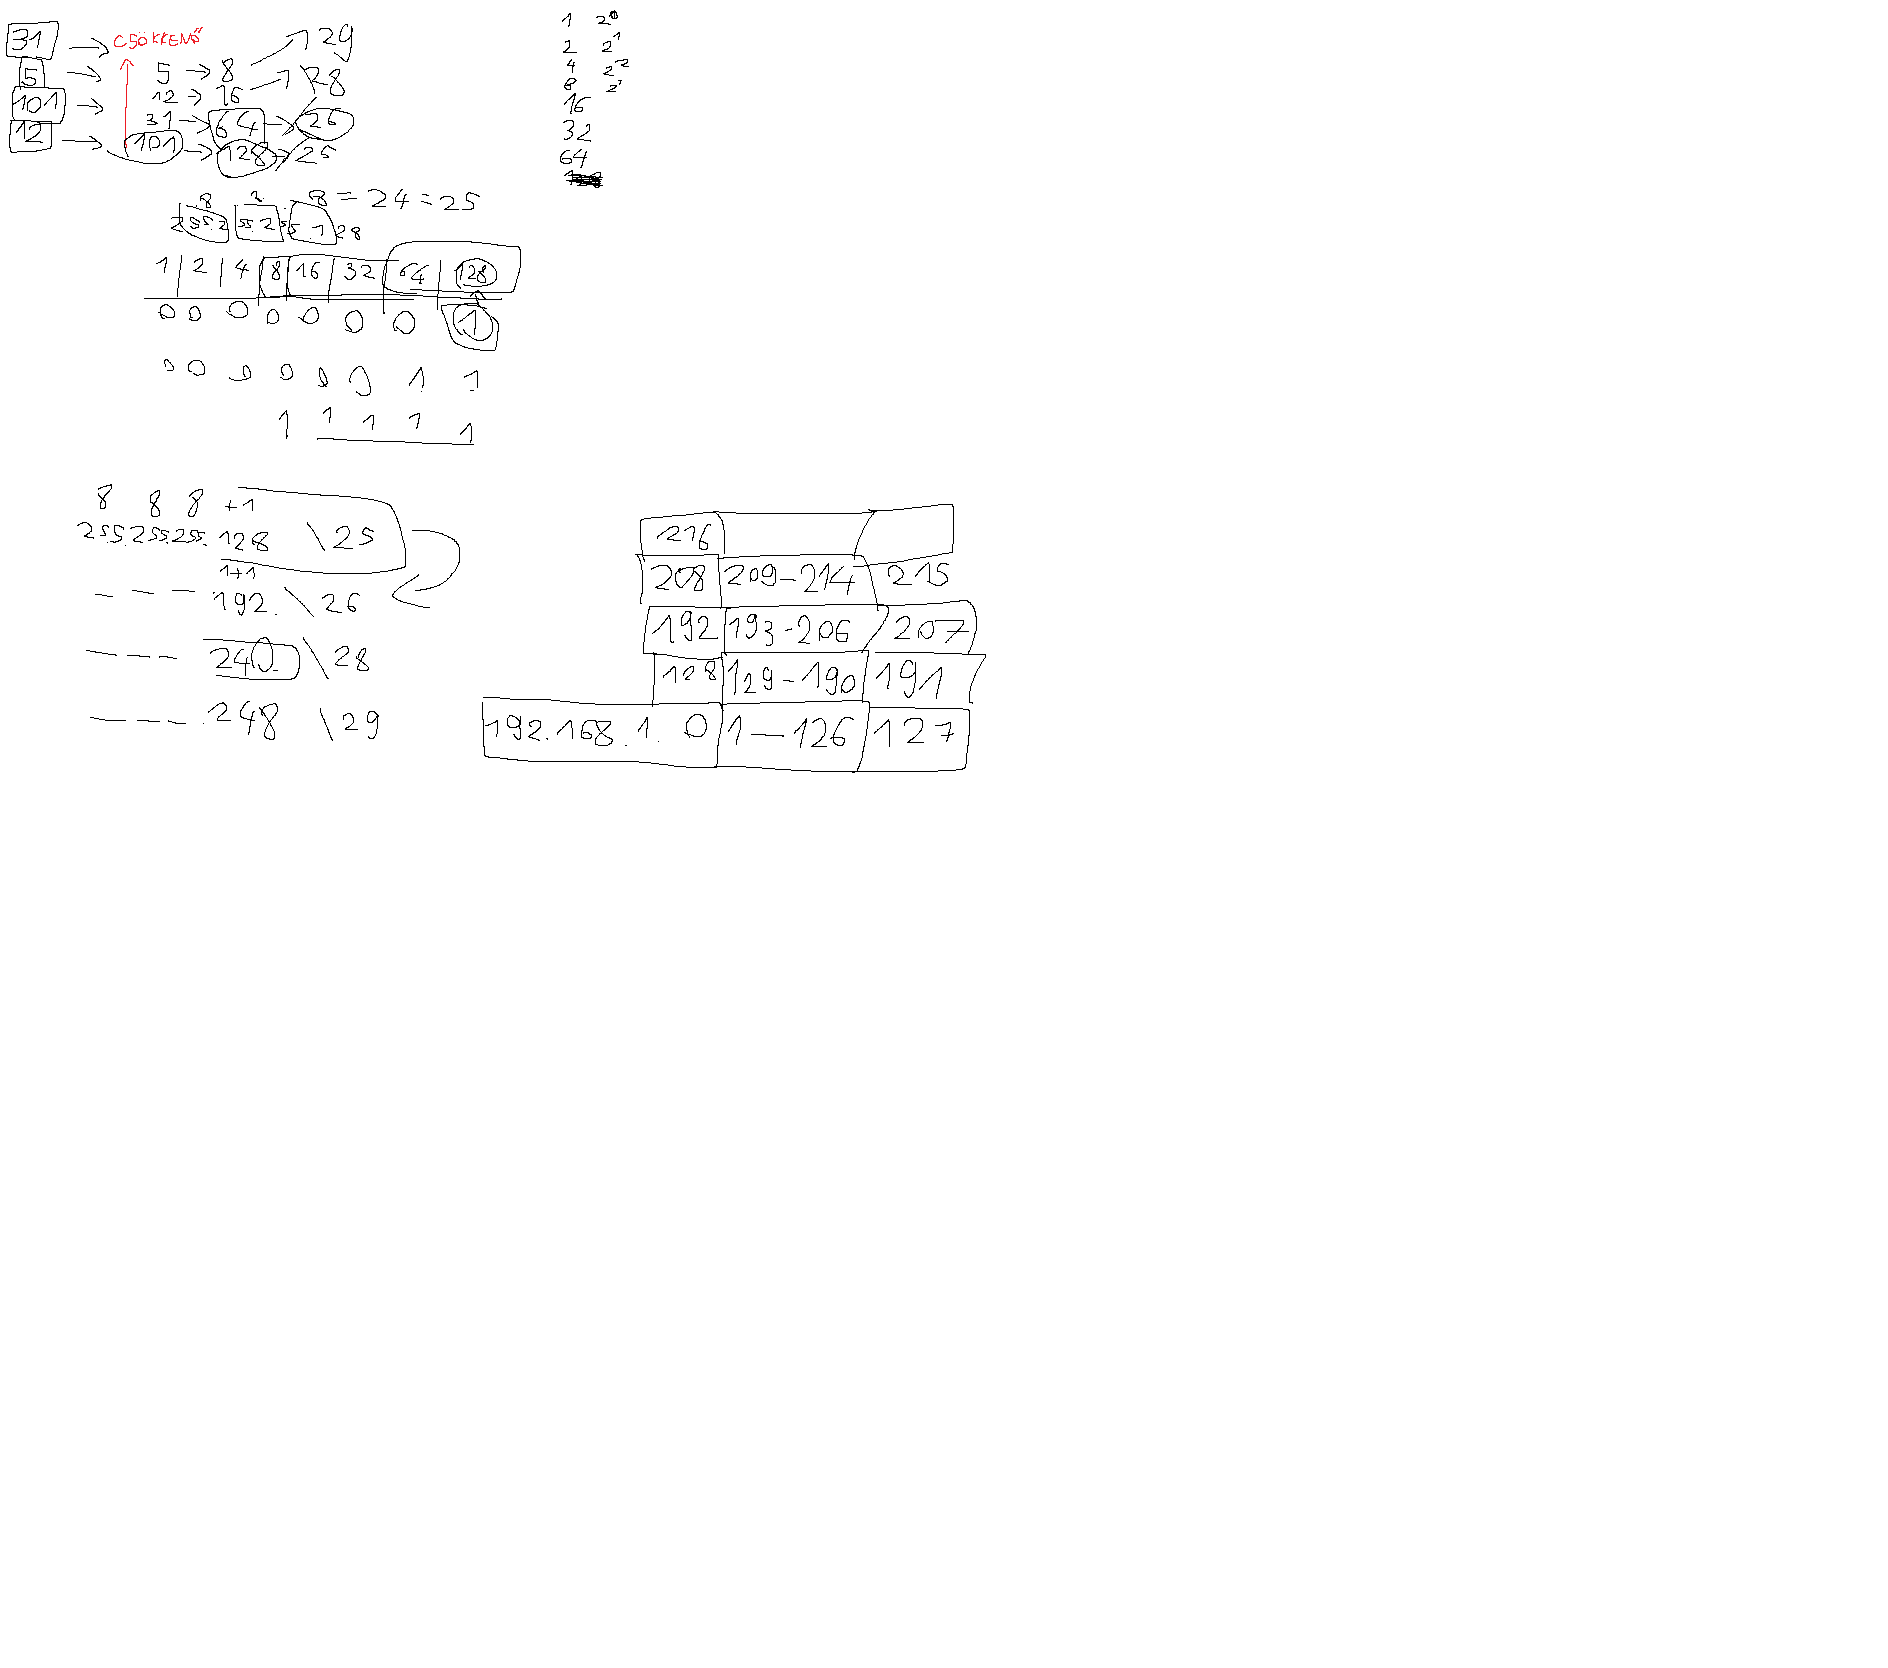 31 → CSÖKKENŐ
5 → 5 → 8 → 29
101 → 12 → 16 → 28
12 → 31 → 64 → 26
101 → 128 → 25
1 2⁰
2 2¹
4 2²
8
16
32
64
8 8 = 24 = 25
255.255.255.128
1 | 2 | 4 | 8 | 16 | 32 | 64 | 128
0 0 0 0 0 0 0 1
0 0 0 0 0 0 1 1
1 1 1 1 1
8 8 8 +1
255.255.255.128 \25
1+1
— — — 192. \26
— — — 240. \28
— — — .248 \29
216
208 209-214 215
192 193-206 207
128 129-190 191
192.168.1.0 1—126 127